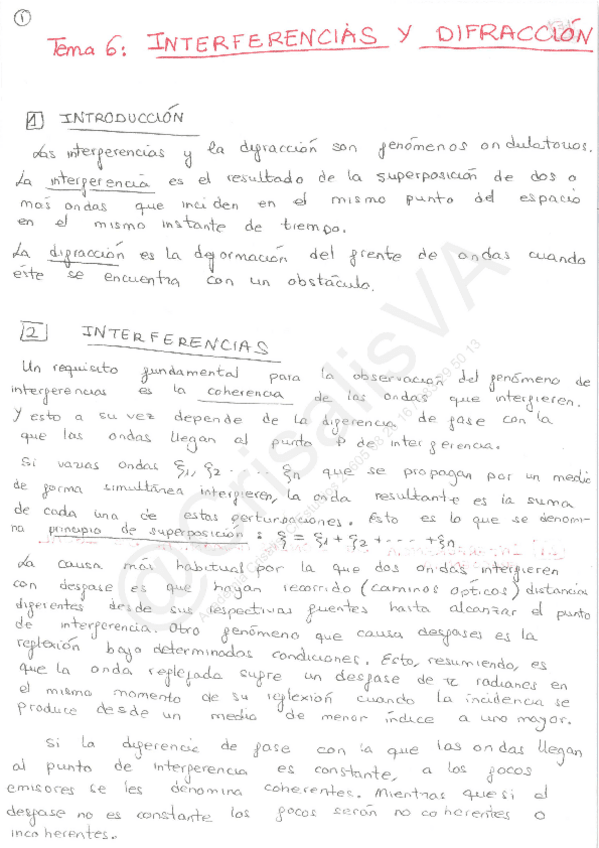 1
Tema 6: INTERFERENCIAS Y DIFRACCIÓN
1 INTRODUCCIÓN
Las interferencias y la difracción son fenómenos ondulatorios.
La interferencia es el resultado de la superposición de dos o
más ondas que inciden en el mismo punto del espacio
en el mismo instante de tiempo.
La difracción es la deformación del frente de ondas cuando
éste se encuentra con un obstáculo.
2 INTERFERENCIAS
Un requisito fundamental para la observación del fenómeno de
interferencias es la coherencia de las ondas que interfieren.
Y esto a su vez depende de la diferencia de fase con la
que las ondas llegan al punto P de interferencia.
Si varias ondas ξ1, ξ2 ..... ξn que se propagan por un medio
de forma simultánea interfieren, la onda resultante es la suma
de cada una de estas perturbaciones. Esto es lo que se denomi-
na principio de superposición: ξ = ξ1 + ξ2 + ... + ξn
La causa más habitual por la que dos ondas interfieren
con desfase es que hayan recorrido (caminos ópticos) distancias
diferentes desde sus respectivas fuentes hasta alcanzar el punto
de interferencia. Otro fenómeno que causa desfases es la
reflexión bajo determinadas condiciones. Esto, resumiendo, es
que la onda reflejada sufre un desfase de π radianes en
el mismo momento de su reflexión cuando la incidencia se
produce desde un medio de menor índice a uno mayor.
Si la diferencia de fase con la que las ondas llegan
al punto de interferencia es constante, a los focos
emisores se les denomina coherentes. Mientras que si el
desfase no es constante los focos serán no coherentes o
incoherentes.
@CrisalisVA